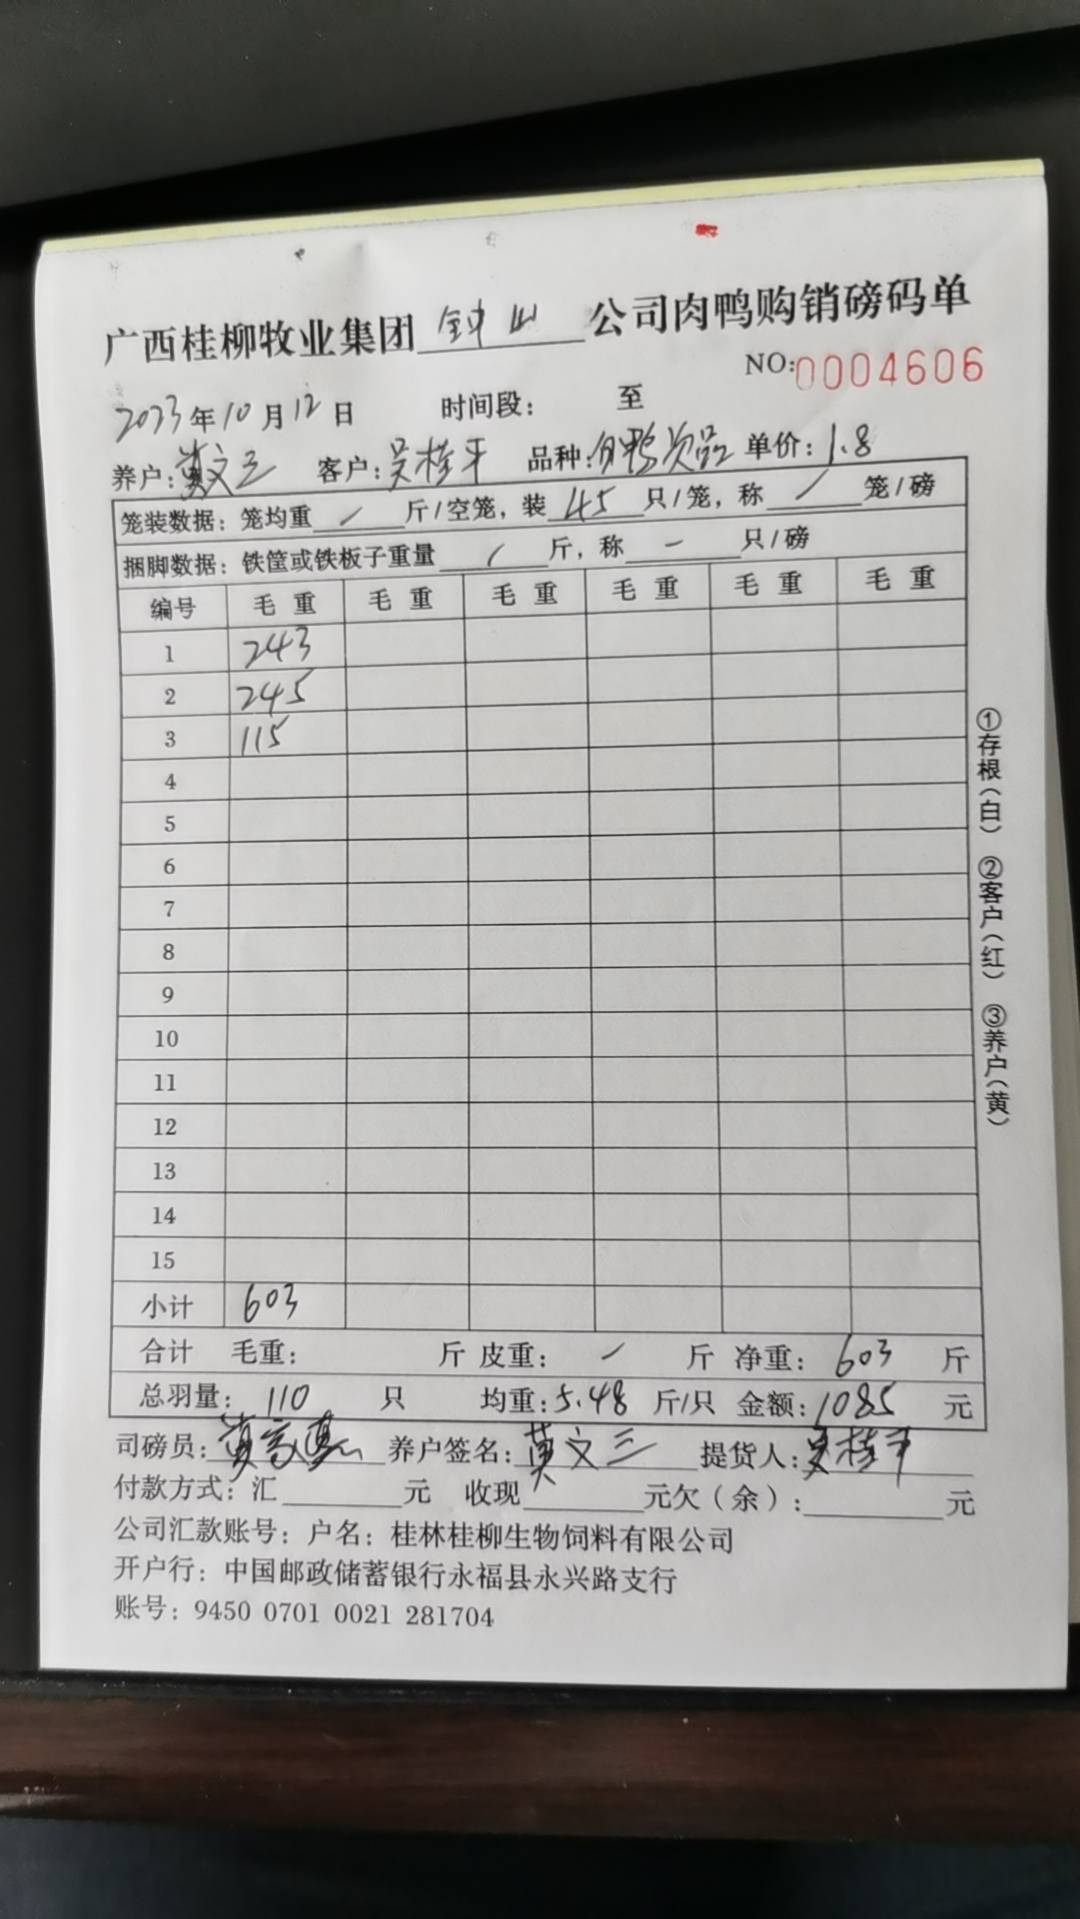 广西桂柳牧业集团 钟山 公司肉鸭购销磅码单
NO:0004606
2023年10月12日 时间段: 至
养户:莫文三 客户:吴桂平 品种:白鸭次品 单价:1.8
笼装数据:笼均重 / 斤/空笼,装 45 只/笼,称 / 笼/磅
捆脚数据:铁筐或铁板子重量 / 斤,称 一 只/磅
编号 毛重 毛重 毛重 毛重 毛重 毛重
1 243
2 245
3 115
4
5
6
7
8
9
10
11
12
13
14
15
小计 603
合计 毛重: 斤 皮重: / 斤 净重: 603 斤
总羽量: 110 只 均重:5.48 斤/只 金额:1085 元
司磅员: 养户签名:莫文三 提货人:吴桂平
付款方式:汇 元 收现 元欠(余): 元
公司汇款账号:户名:桂林桂柳生物饲料有限公司
开户行:中国邮政储蓄银行永福县永兴路支行
账号:9450 0701 0021 281704
①存根(白) ②客户(红) ③养户(黄)